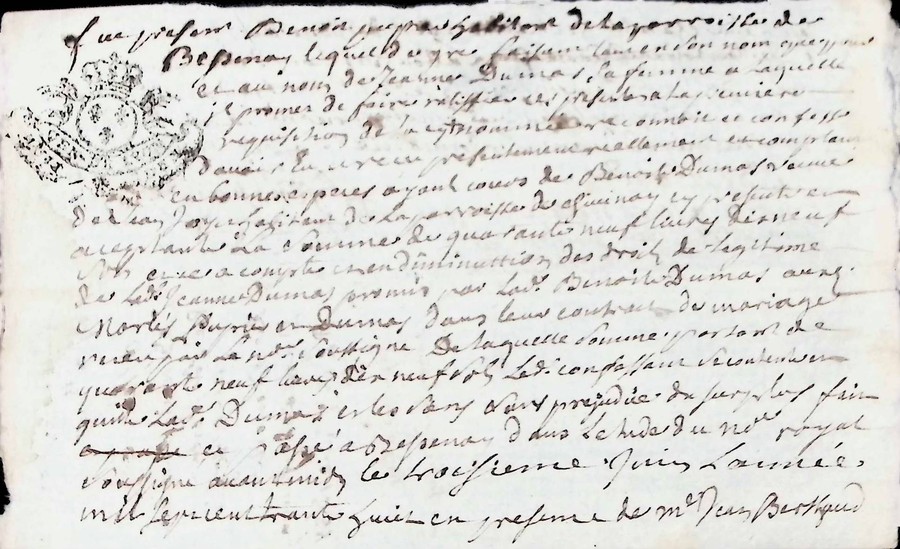 fut present Benoit habitant de la parroisse de
Bessenay lequel de gré faisant tant en son nom que pour
et au nom de Jeanne Dumas sa femme a laquelle
il promet de faire ratiffier ces presentes a la premiere
requisition de la cy nommée reconnoit et confesse
d'avoir eu et receu presentement reellement et comptant
en bonnes especes ayant cours de Benoite Dumas veuve
de Jean habitant de la parroisse de presente et
aceptante la somme de quarante neuf livres dix neuf
sols et ce a compte et en diminution des droits de legitime
de lad. Jeanne Dumas promis par lad. Benoite Dumas aux
mariés et Dumas dans leur contrat de mariage
receu par le no.re soussigné de laquelle somme portant de
quarante neuf livres dix neuf sols led. confessant se contente et
quitte lad. Dumas et les siens sans prejudice du surplus fait
et passé a Bessenay dans letude du no.re royal
soussigné avant midy le troisieme juin l'année
mil sept cent trante huit en presence de m.e Jean Berthaud